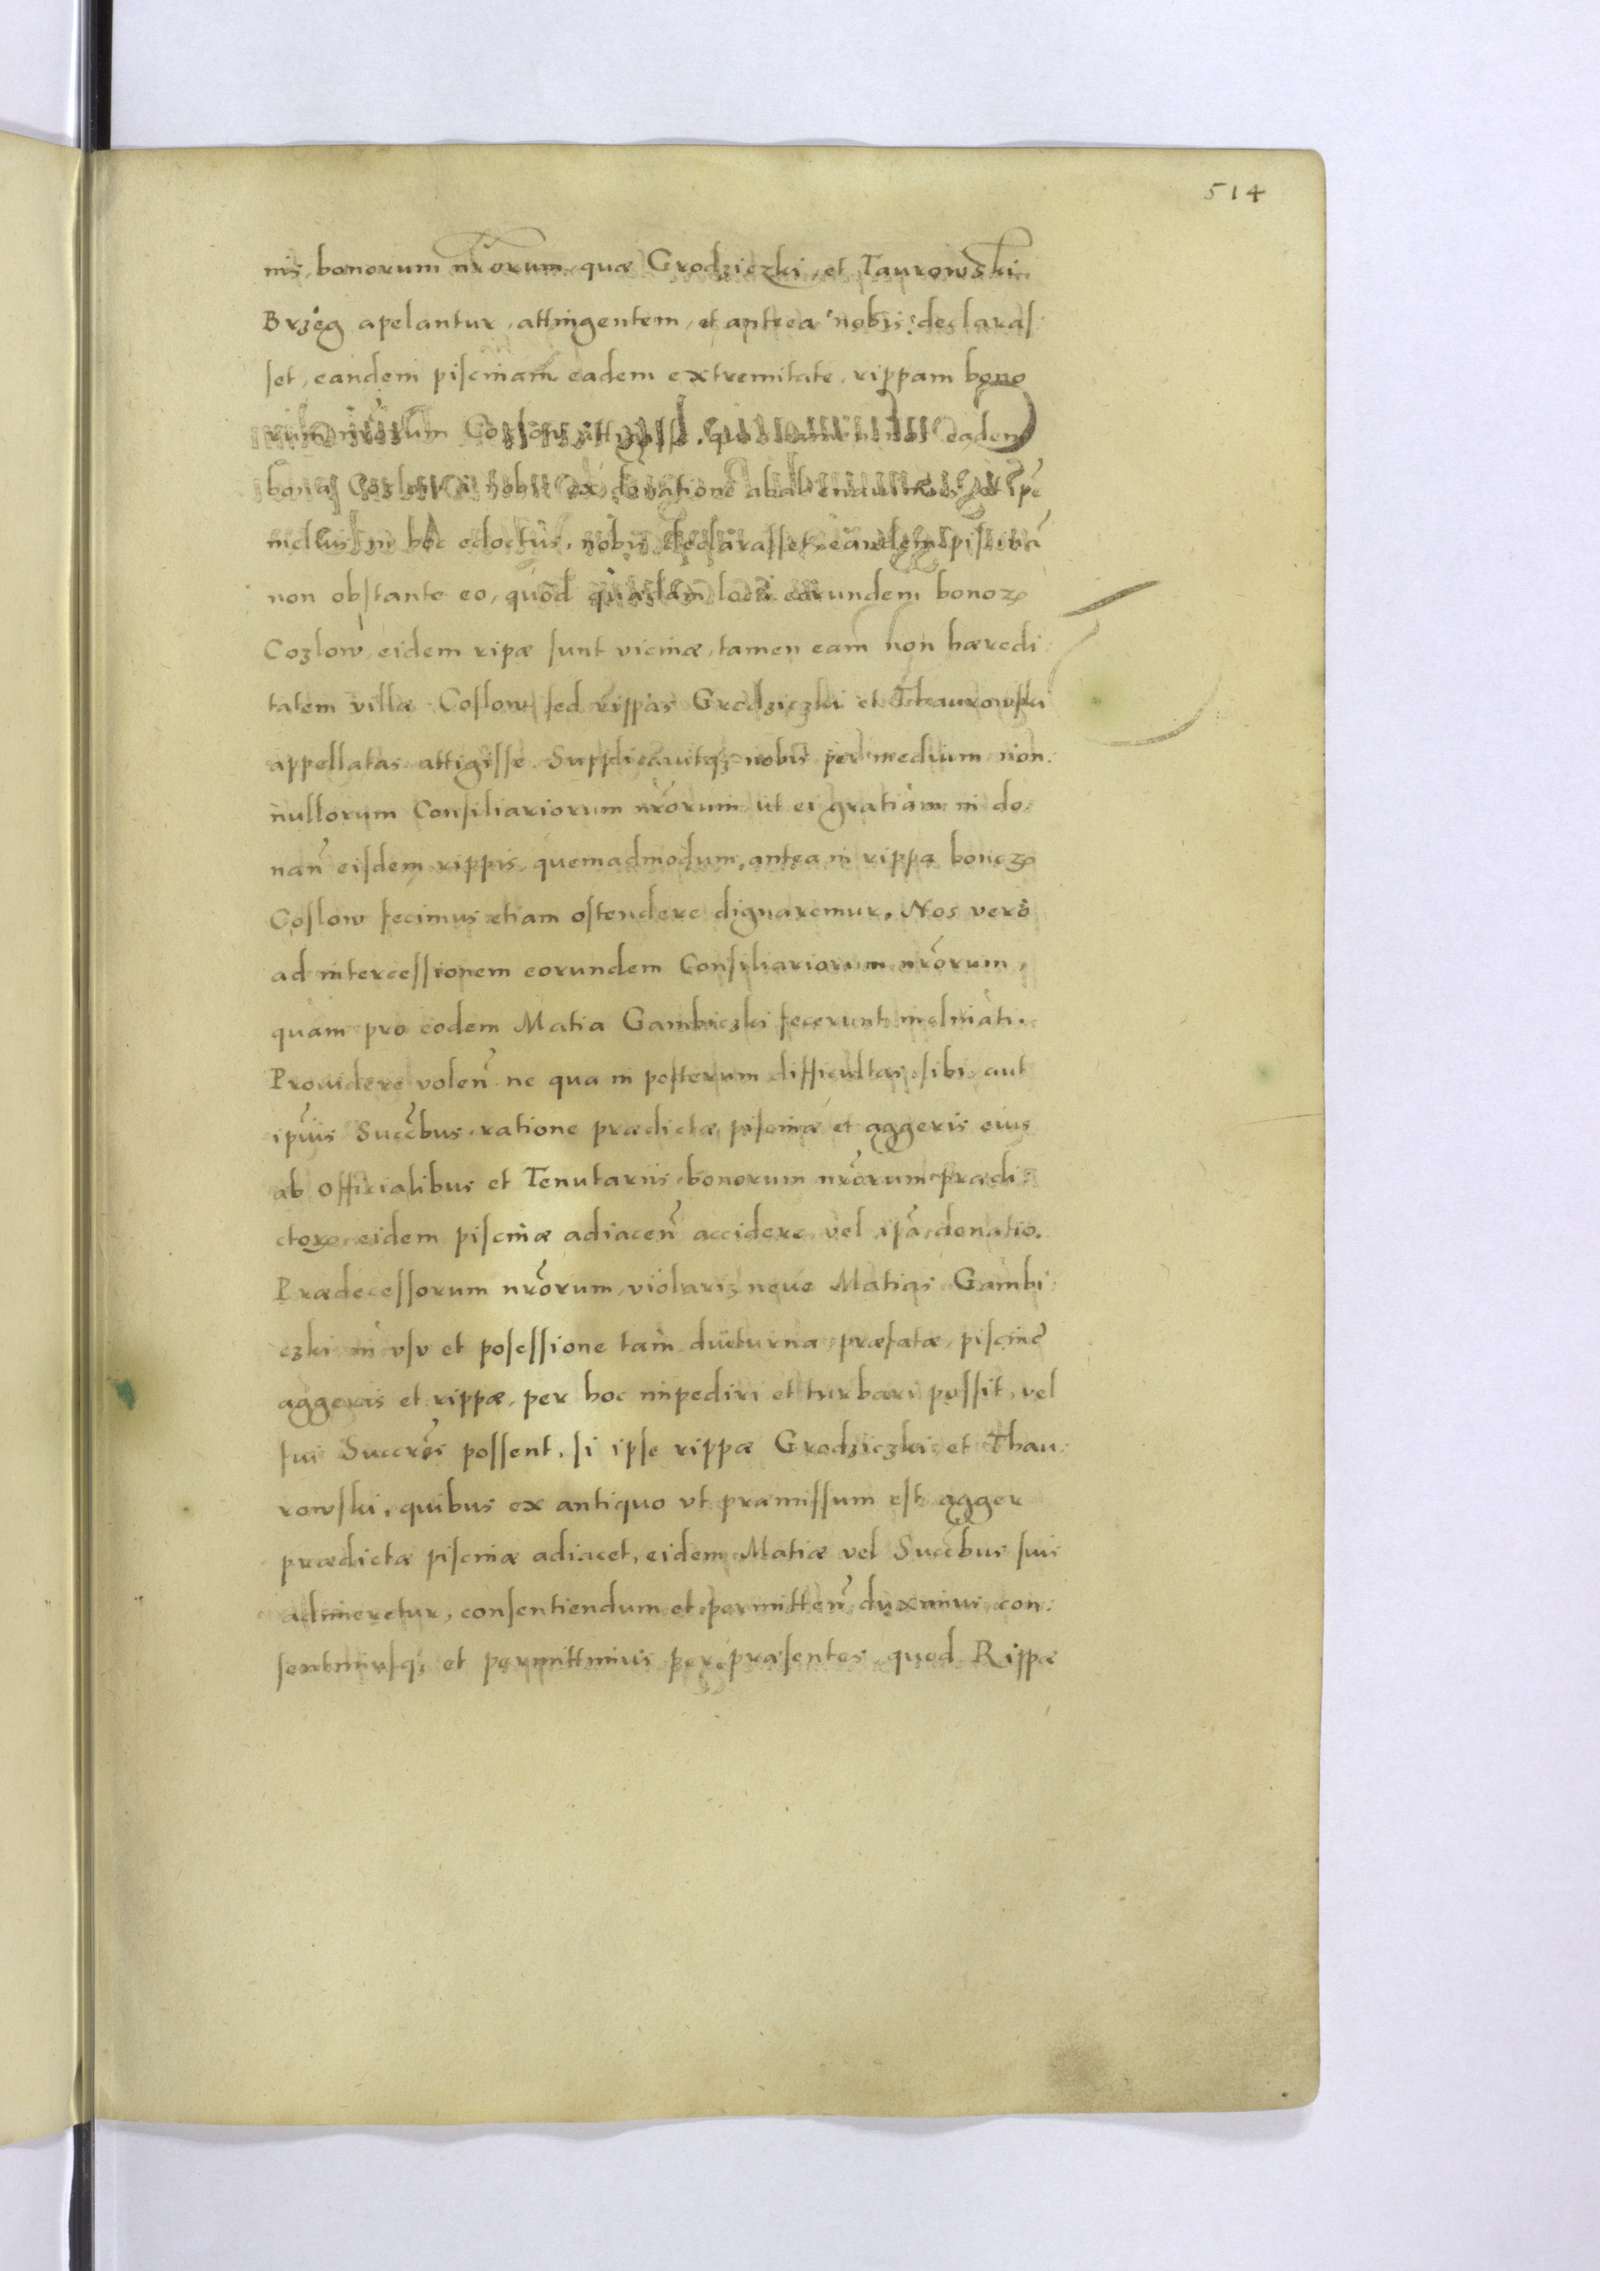 514
nis, bonorum nr̄orum, quæ Grodziczki, et Taurowski
Brzeg apelantur, attingentem, et antea nobis declaras
set, eandem piscinam eadem extremitate, rippam bono
rum nr̄orum Coslow attigisse, eadem
bona Cozlow a nobis ex donatione ip̄e
melius in hoc edoctus, nobis declarasset, eandem piscinā
non obstante eo, quod quædam loca earundem bonoꝝ
Cozlow, eidem ripæ sunt vicinæ, tamen eam non hæredi
tatem villæ Coslow, sed rippas Grodziczki et Thaurowski
appellatas attigisse. Supplicavitqꝫ nobis per medium non
nullorum Consiliariorum nr̄orum ut ei gratiam in do
nan̄ eisdem rippis, quemadmodum, antea in rippa bonoꝝ
Coslow fecimus etiam ostendere dignaremur. Nos vero
ad intercessionem eorundem Consiliariorum nr̄orum,
quam pro eodem Matia Gambiczki fecerunt inclinati.
Providere volen̄ ne qua in posterum difficultas, sibi aut
ip̄ius Succ̄bus, ratione prædictæ, piscinæ et aggeris eius
ab Officialibus et Tenutariis, bonorum nr̄orum prædi
ctoꝝ, eidem piscinæ adiacen̄ accidere, vel ip̄a, donatio.
Prædecessorum nr̄orum, violari, neve Matias Gambi
czki in vsv et posessione tam diuturna, præfatæ, piscinæ
aggeris et rippæ, per hoc impediri et turbari possit, vel
sui Succr̄es possent, si ipse rippæ Grodziczki et Thau
rowski, quibus ex antiquo vt præmissum est agger
prædictæ piscinæ adiacet, eidem Matiæ vel Succ̄bus suis
adimeretur, consentiendum et permitten̄ duximus con
sentimusqꝫ et permittimus per præsentes, quod Rippæ